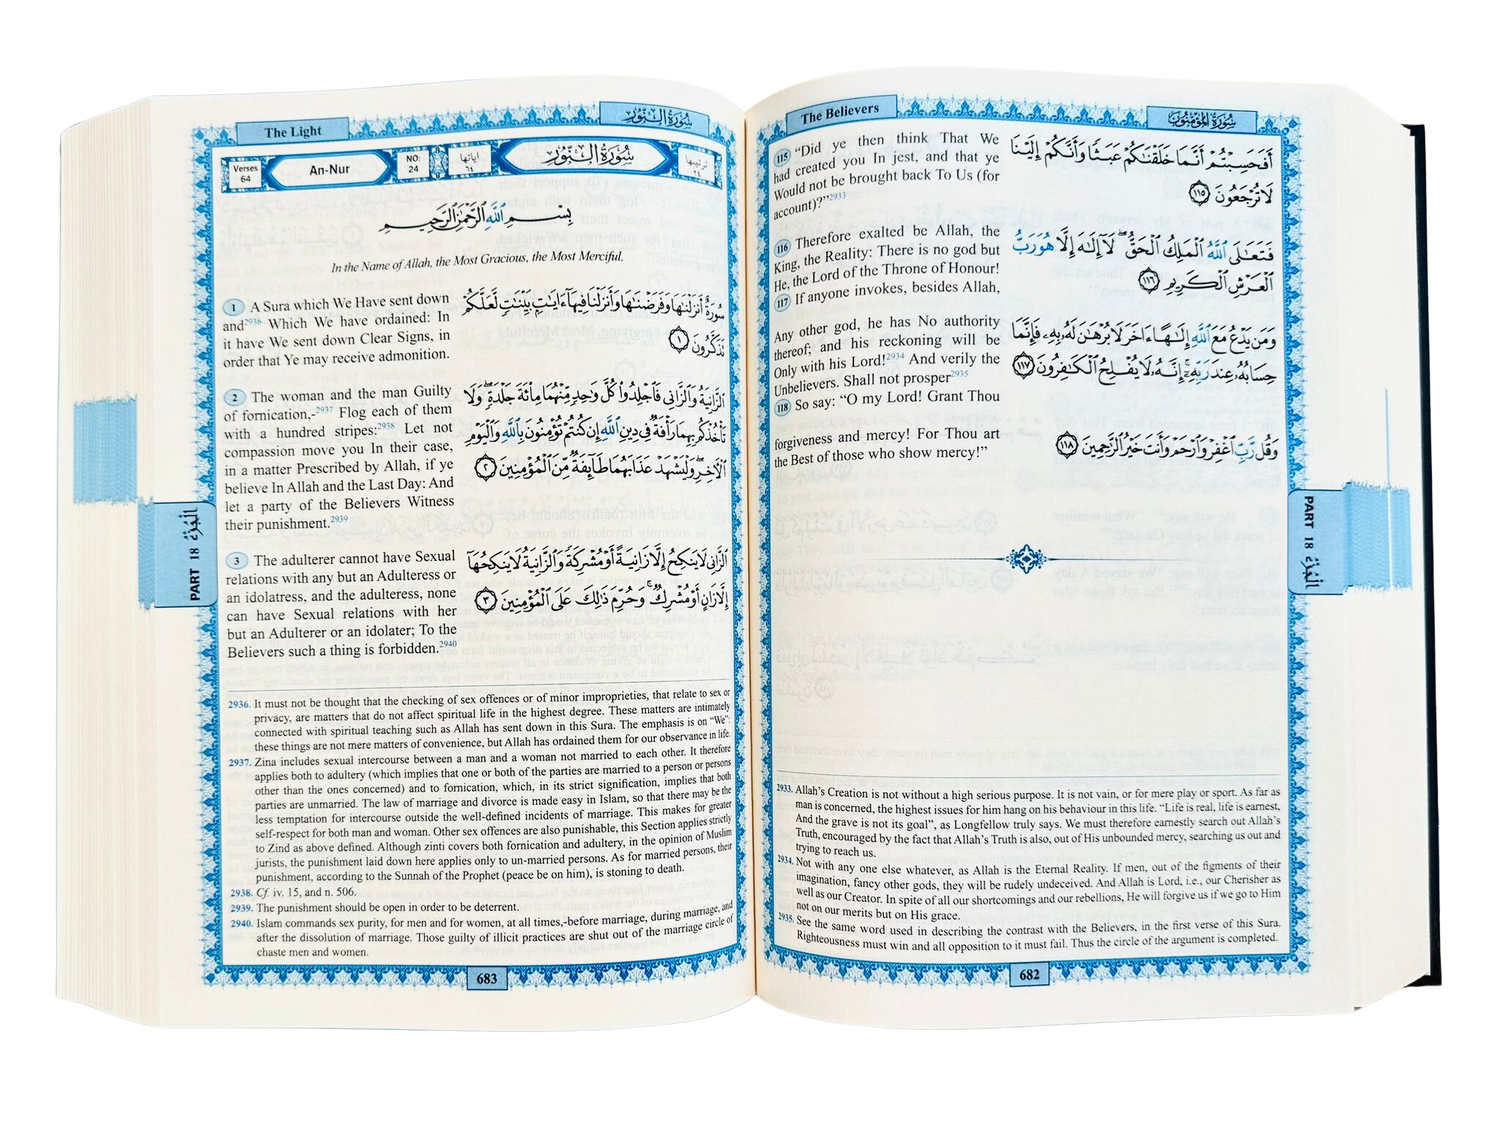 The Believers
سورة المؤمنون
115 “Did ye then think That We
had created you In jest, and that ye
Would not be brought back To Us (for
account)?”2933
116 Therefore exalted be Allah, the
King, the Reality: There is no god but
He, the Lord of the Throne of Honour!
117 If anyone invokes, besides Allah,
Any other god, he has No authority
thereof; and his reckoning will be
Only with his Lord!2934 And verily the
Unbelievers. Shall not prosper2935
118 So say: “O my Lord! Grant Thou
forgiveness and mercy! For Thou art
the Best of those who show mercy!”
أَفَحَسِبْتُمْ أَنَّمَا خَلَقْنَٰكُمْ عَبَثًا وَأَنَّكُمْ إِلَيْنَا
لَا تُرْجَعُونَ ١١٥
فَتَعَٰلَى ٱللَّهُ ٱلْمَلِكُ ٱلْحَقُّ ۖ لَآ إِلَٰهَ إِلَّا هُوَ رَبُّ
ٱلْعَرْشِ ٱلْكَرِيمِ ١١٦
وَمَن يَدْعُ مَعَ ٱللَّهِ إِلَٰهًا ءَاخَرَ لَا بُرْهَٰنَ لَهُۥ بِهِۦ فَإِنَّمَا
حِسَابُهُۥ عِندَ رَبِّهِۦٓ ۚ إِنَّهُۥ لَا يُفْلِحُ ٱلْكَٰفِرُونَ ١١٧
وَقُل رَّبِّ ٱغْفِرْ وَٱرْحَمْ وَأَنتَ خَيْرُ ٱلرَّٰحِمِينَ ١١٨
PART 18 الجزء
2933. Allah’s Creation is not without a high serious purpose. It is not vain, or for mere play or sport. As far as
man is concerned, the highest issues for him hang on his behaviour in this life. “Life is real, life is earnest,
And the grave is not its goal”, as Longfellow truly says. We must therefore earnestly search out Allah’s
Truth, encouraged by the fact that Allah’s Truth is also, out of His unbounded mercy, searching us out and
trying to reach us.
2934. Not with any one else whatever, as Allah is the Eternal Reality. If men, out of the figments of their
imagination, fancy other gods, they will be rudely undeceived. And Allah is Lord, i.e., our Cherisher as
well as our Creator. In spite of all our shortcomings and our rebellions, He will forgive us if we go to Him
not on our merits but on His grace.
2935. See the same word used in describing the contrast with the Believers, in the first verse of this Sura.
Righteousness must win and all opposition to it must fail. Thus the circle of the argument is completed.
682
The Light
سورة النور
Verses 64
An-Nur
NO: 24
اياتها ٦٤
سورة النور
ترتيبها ٢٤
بِسْمِ ٱللَّهِ ٱلرَّحْمَٰنِ ٱلرَّحِيمِ
In the Name of Allah, the Most Gracious, the Most Merciful.
1 A Sura which We Have sent down
and2936 Which We have ordained: In
it have We sent down Clear Signs, in
order that Ye may receive admonition.
2 The woman and the man Guilty
of fornication,-2937 Flog each of them
with a hundred stripes:2938 Let not
compassion move you In their case,
in a matter Prescribed by Allah, if ye
believe In Allah and the Last Day: And
let a party of the Believers Witness
their punishment.2939
3 The adulterer cannot have Sexual
relations with any but an Adulteress or
an idolatress, and the adulteress, none
can have Sexual relations with her
but an Adulterer or an idolater; To the
Believers such a thing is forbidden.2940
سُورَةٌ أَنزَلْنَٰهَا وَفَرَضْنَٰهَا وَأَنزَلْنَا فِيهَآ ءَايَٰتٍۭ بَيِّنَٰتٍ لَّعَلَّكُمْ
تَذَكَّرُونَ ١
ٱلزَّانِيَةُ وَٱلزَّانِى فَٱجْلِدُوا۟ كُلَّ وَٰحِدٍ مِّنْهُمَا مِا۟ئَةَ جَلْدَةٍ ۖ وَلَا
تَأْخُذْكُم بِهِمَا رَأْفَةٌ فِى دِينِ ٱللَّهِ إِن كُنتُمْ تُؤْمِنُونَ بِٱللَّهِ وَٱلْيَوْمِ
ٱلْـَٔاخِرِ ۖ وَلْيَشْهَدْ عَذَابَهُمَا طَآئِفَةٌ مِّنَ ٱلْمُؤْمِنِينَ ٢
ٱلزَّانِى لَا يَنكِحُ إِلَّا زَانِيَةً أَوْ مُشْرِكَةً وَٱلزَّانِيَةُ لَا يَنكِحُهَآ
إِلَّا زَانٍ أَوْ مُشْرِكٌ ۚ وَحُرِّمَ ذَٰلِكَ عَلَى ٱلْمُؤْمِنِينَ ٣
PART 18 الجزء
2936. It must not be thought that the checking of sex offences or of minor improprieties, that relate to sex or
privacy, are matters that do not affect spiritual life in the highest degree. These matters are intimately
connected with spiritual teaching such as Allah has sent down in this Sura. The emphasis is on “We”:
these things are not mere matters of convenience, but Allah has ordained them for our observance in life.
2937. Zina includes sexual intercourse between a man and a woman not married to each other. It therefore
applies both to adultery (which implies that one or both of the parties are married to a person or persons
other than the ones concerned) and to fornication, which, in its strict signification, implies that both
parties are unmarried. The law of marriage and divorce is made easy in Islam, so that there may be the
less temptation for intercourse outside the well-defined incidents of marriage. This makes for greater
self-respect for both man and woman. Other sex offences are also punishable, this Section applies strictly
to Zind as above defined. Although zinti covers both fornication and adultery, in the opinion of Muslim
jurists, the punishment laid down here applies only to un-married persons. As for married persons, their
punishment, according to the Sunnah of the Prophet (peace be on him), is stoning to death.
2938. Cf. iv. 15, and n. 506.
2939. The punishment should be open in order to be deterrent.
2940. Islam commands sex purity, for men and for women, at all times,-before marriage, during marriage, and
after the dissolution of marriage. Those guilty of illicit practices are shut out of the marriage circle of
chaste men and women.
683